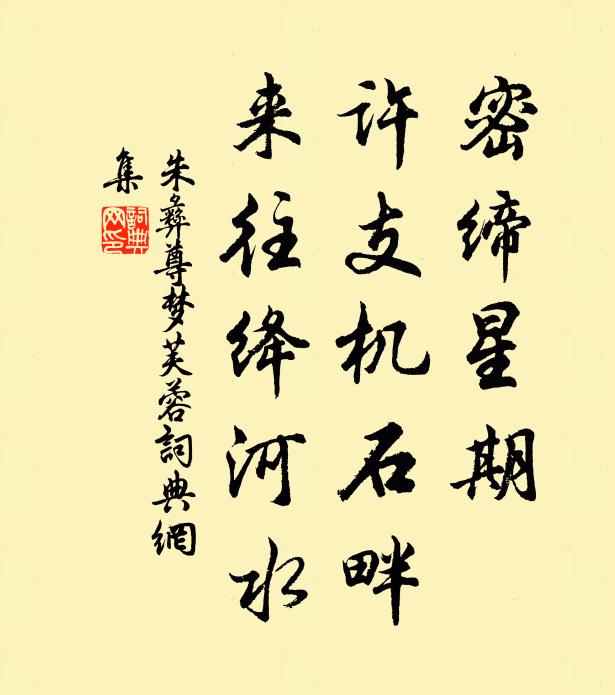 密缔星期
许支机石畔
来往绛河水
朱彝尊梦芙蓉詞典網
集
詞典網印